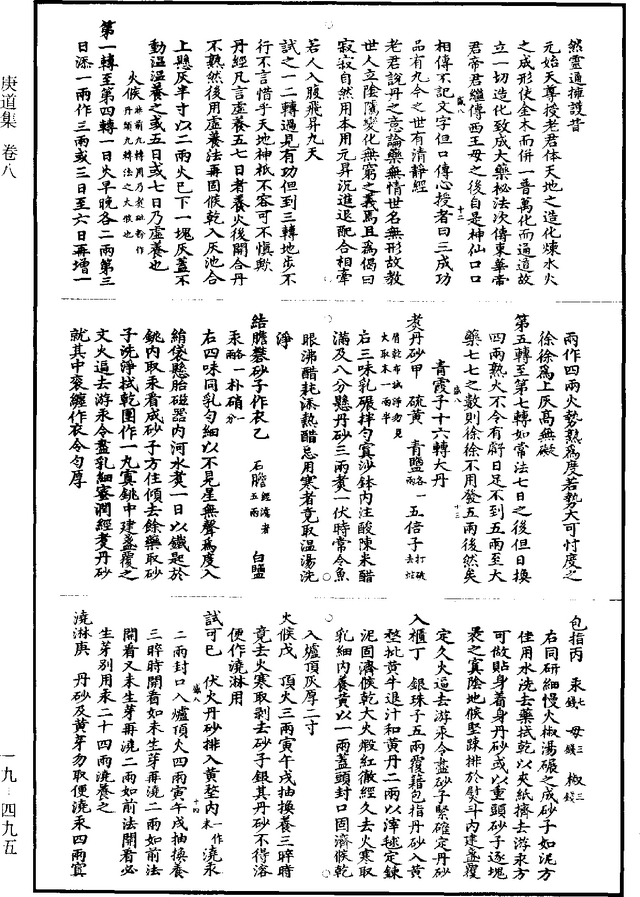 庚道集 卷八
一九-四九五
然靈通擁護昔
元始天尊授老君体天地之造化煉水火
之成形使金木而併一晉萬化而過這故
立一切造化致成大藥秘法次傳東華帝
君帝君繼傳西王母之後自是神仙口口
相傳不記文字但口傳心授者曰三成功
品有九今之世有清靜經
老君說丹之意論藥無情世名無形故教
世人立陰陽變化無窮之義焉且為偈曰
寂寂自然用本用元昇沉進退配合相牽
若人入腹飛昇九天
試之一二轉過見有功但到三轉地步不
行不言惜乎天地神祇不容可不慎歟
丹經凡言虛養五七日者養火後開合丹
不熟然後用虛養法再固候乾入灰池合
上懸灰半寸以二兩火已下一塊灰蓋不
動溫溫養之或五日或七日乃虛養也
火候
第一轉至第四轉一日火早晚各二兩第三
日添一兩作三兩或三日至六日再增一
兩作四兩火勢熟為度若勢大可忖度之
徐徐為上灰高無礙
第五轉至第七轉如常法七日之後但日換
四兩熟火不令有辭日足不到五兩至大
藥七七之數則徐徐不用發五兩後然矣
青霞子十六轉大丹
煑丹砂甲 硫黃 青鹽各一兩 五倍子打破去蚛
屑乾布拭淨勿見大取本一兩半
右三味乳碾拌勻寘沙鉢內注酸陳米醋
滿及八分懸丹砂三兩煑一伏時常令魚
眼沸醋耗添熱醋忌用寒者竟取溫湯洗
淨
結膽礬砂子作衣乙 石膽經滴者五兩 白鹽
汞各一兩 朴硝一分
右四味同乳勻細以不見星無聲為度入
絹袋懸胎磁器內河水煑一日以鐵匙於
銚內取汞看成砂子方住傾去餘藥取砂
子洗淨拭乾團作一丸寘銚中建盞覆之
文火逼去游汞令盡乳細蜜潤經煑丹砂
就其中袞纏作衣令勻厚
包指丙 汞七錢 母三錢 椒三錢
右同研細慢火椒湯碾之成砂子如泥方
住用水洗去藥拭乾以夾紙擠去游汞方
可做貼身着身丹砂或以重頭砂子逐塊
裹之寘陰地候堅踈排於熨斗內建盞覆
定久火逼去游汞令盡砂子緊確定丹砂
入櫃丁 銀珠子五兩覆藉包指丹砂入黃
堥扯黃牛退汁和黃丹二兩以滓毬定鍊
泥固濟候乾大火煅紅徹經久去火寒取
乳細內養黃以一兩蓋頭封口固濟候乾
入爐頂灰厚二寸
火候戊 頂火三兩寅午戌抽換養三晬時
竟去火寒取剥去砂子銀其丹砂不得溶
便作澆淋用
試可已 伏火丹砂排入黃堥內一作末 澆汞
二兩封口入爐頂火四兩寅午戌抽換養
三晬時開看如未生芽再澆二兩如前法
開看又未生芽再澆二兩如前法開看必
生芽別用汞二十四兩澆養之
澆淋庚 丹砂及黃芽勿取便澆汞四兩寘